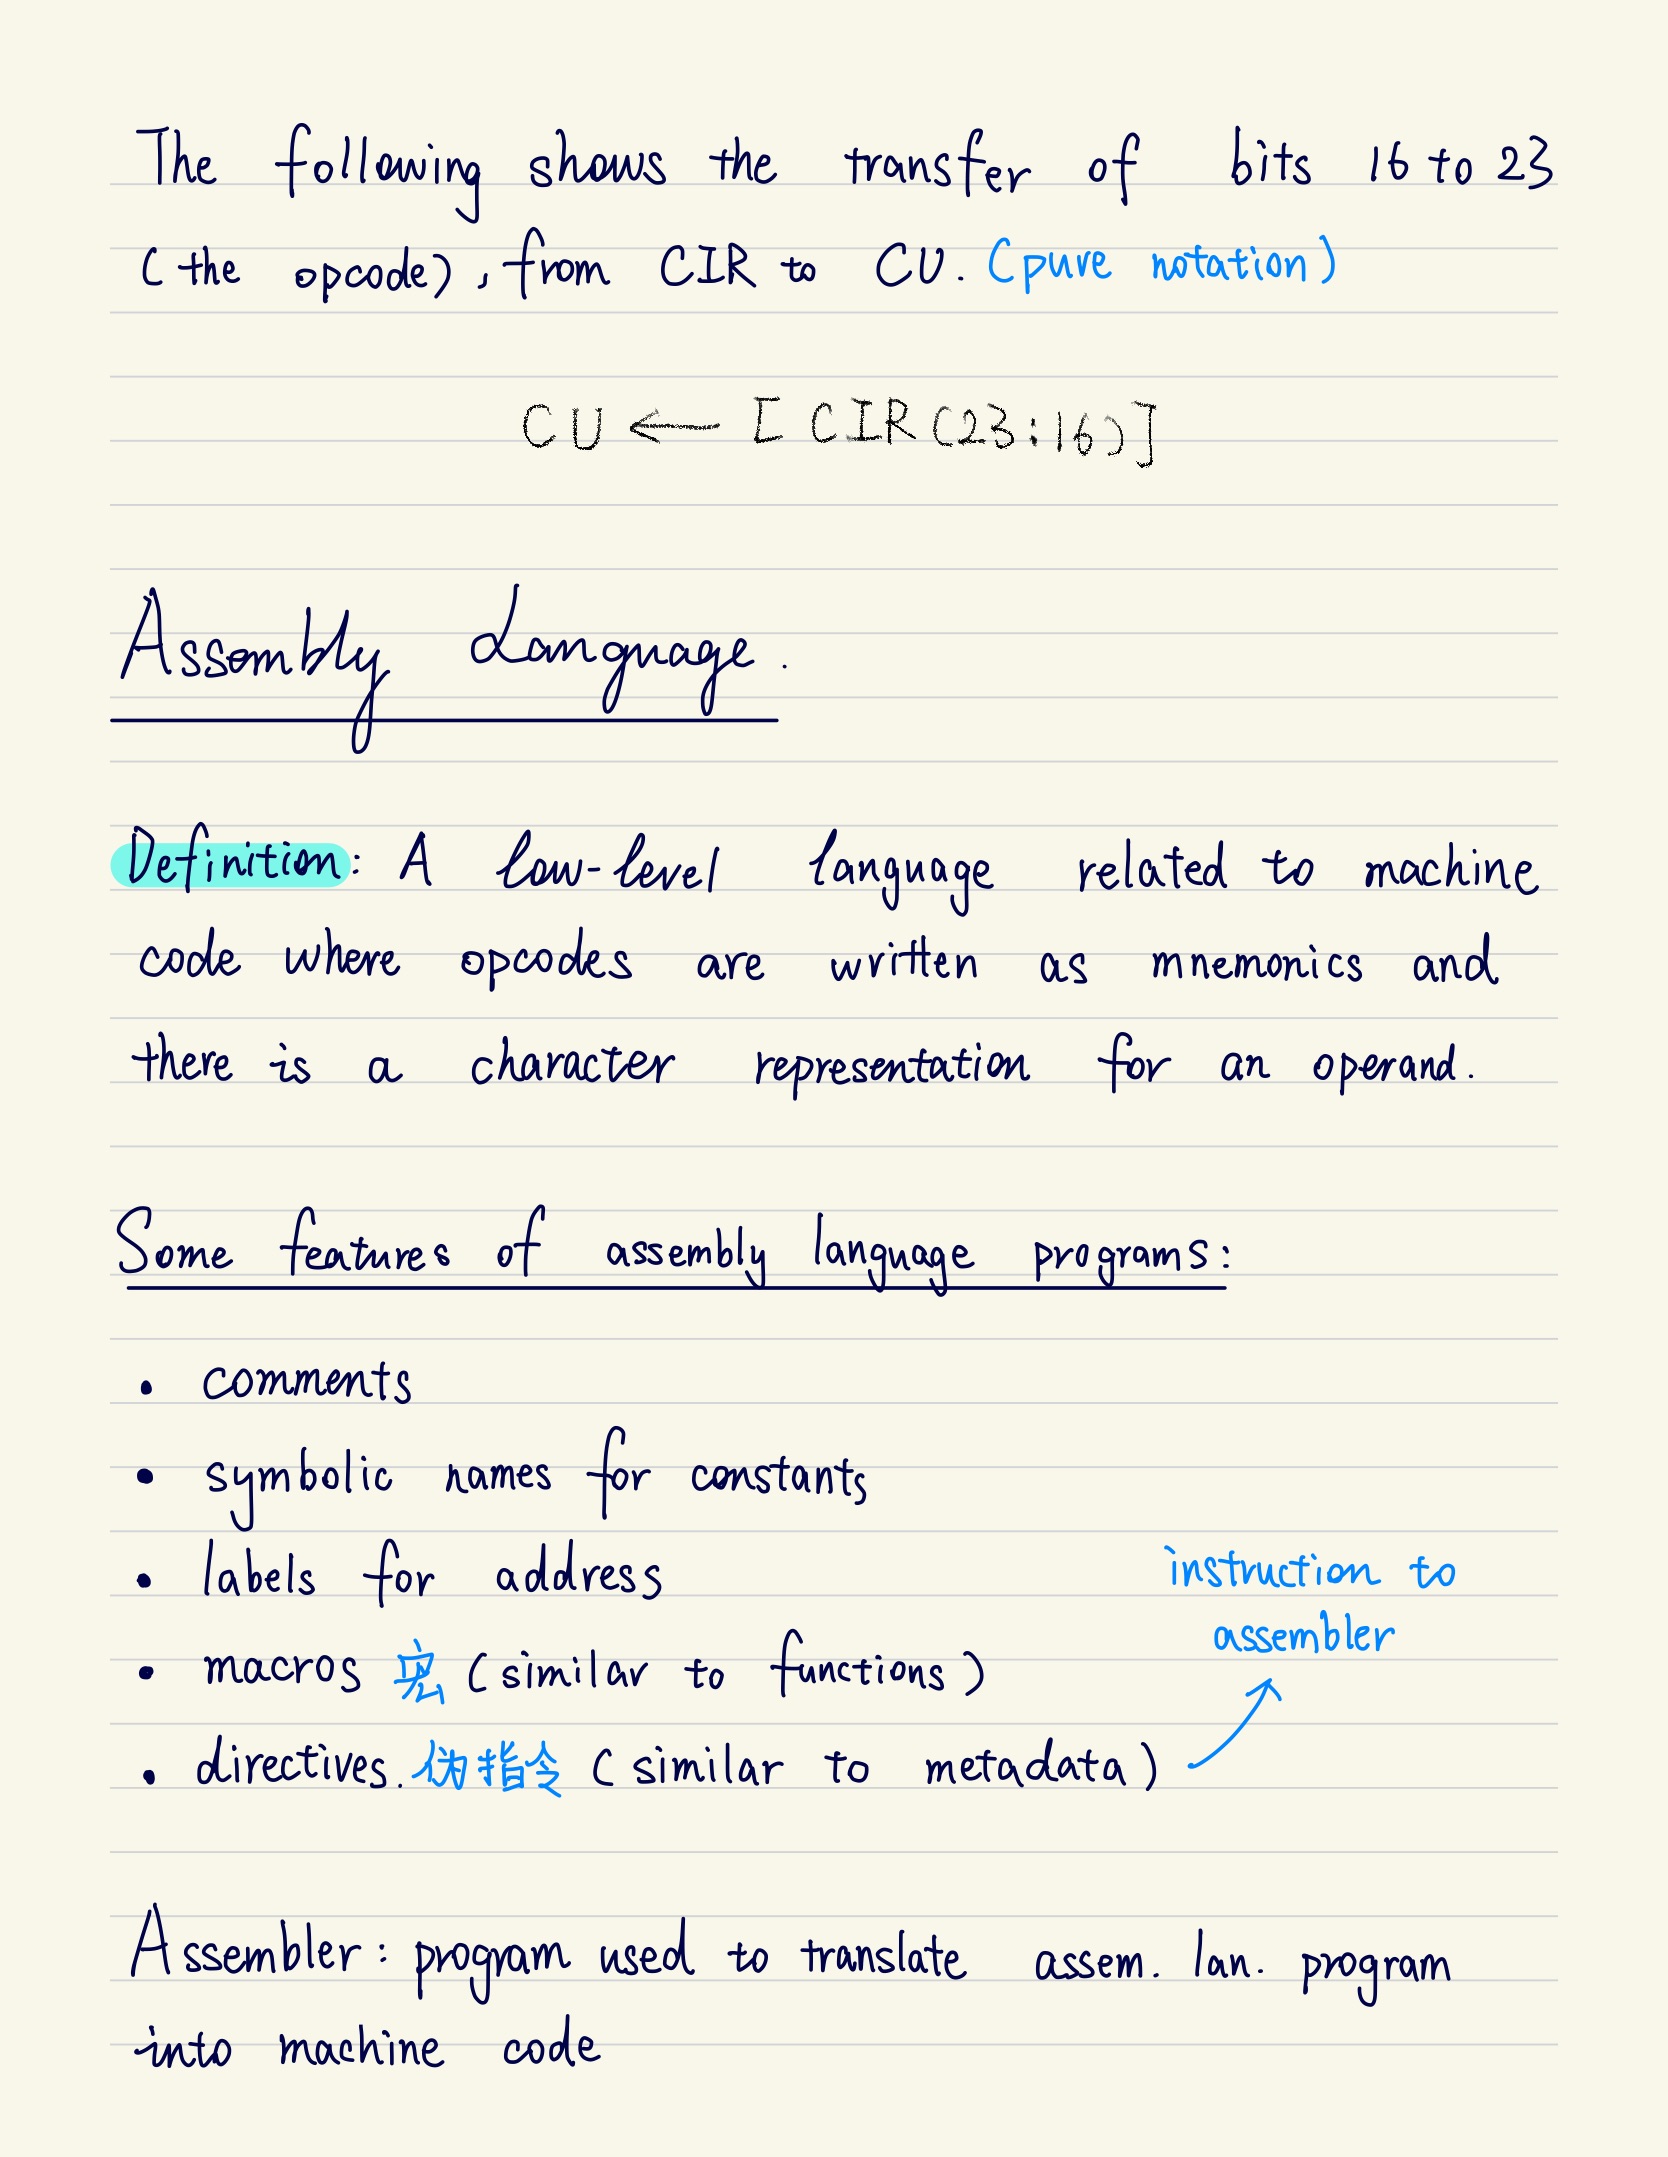 The following shows the transfer of bits 16 to 23
(the opcode), from CIR to CU. (pure notation)
CU ← [CIR(23:16)]
Assembly Language.
Definition: A low-level language related to machine
code where opcodes are written as mnemonics and
there is a character representation for an operand.
Some features of assembly language programs:
• comments
• symbolic names for constants
• labels for address
instruction to
assembler
• macros 宏 (similar to functions)
• directives. 伪指令 (similar to metadata)
Assembler: program used to translate assem. lan. program
into machine code